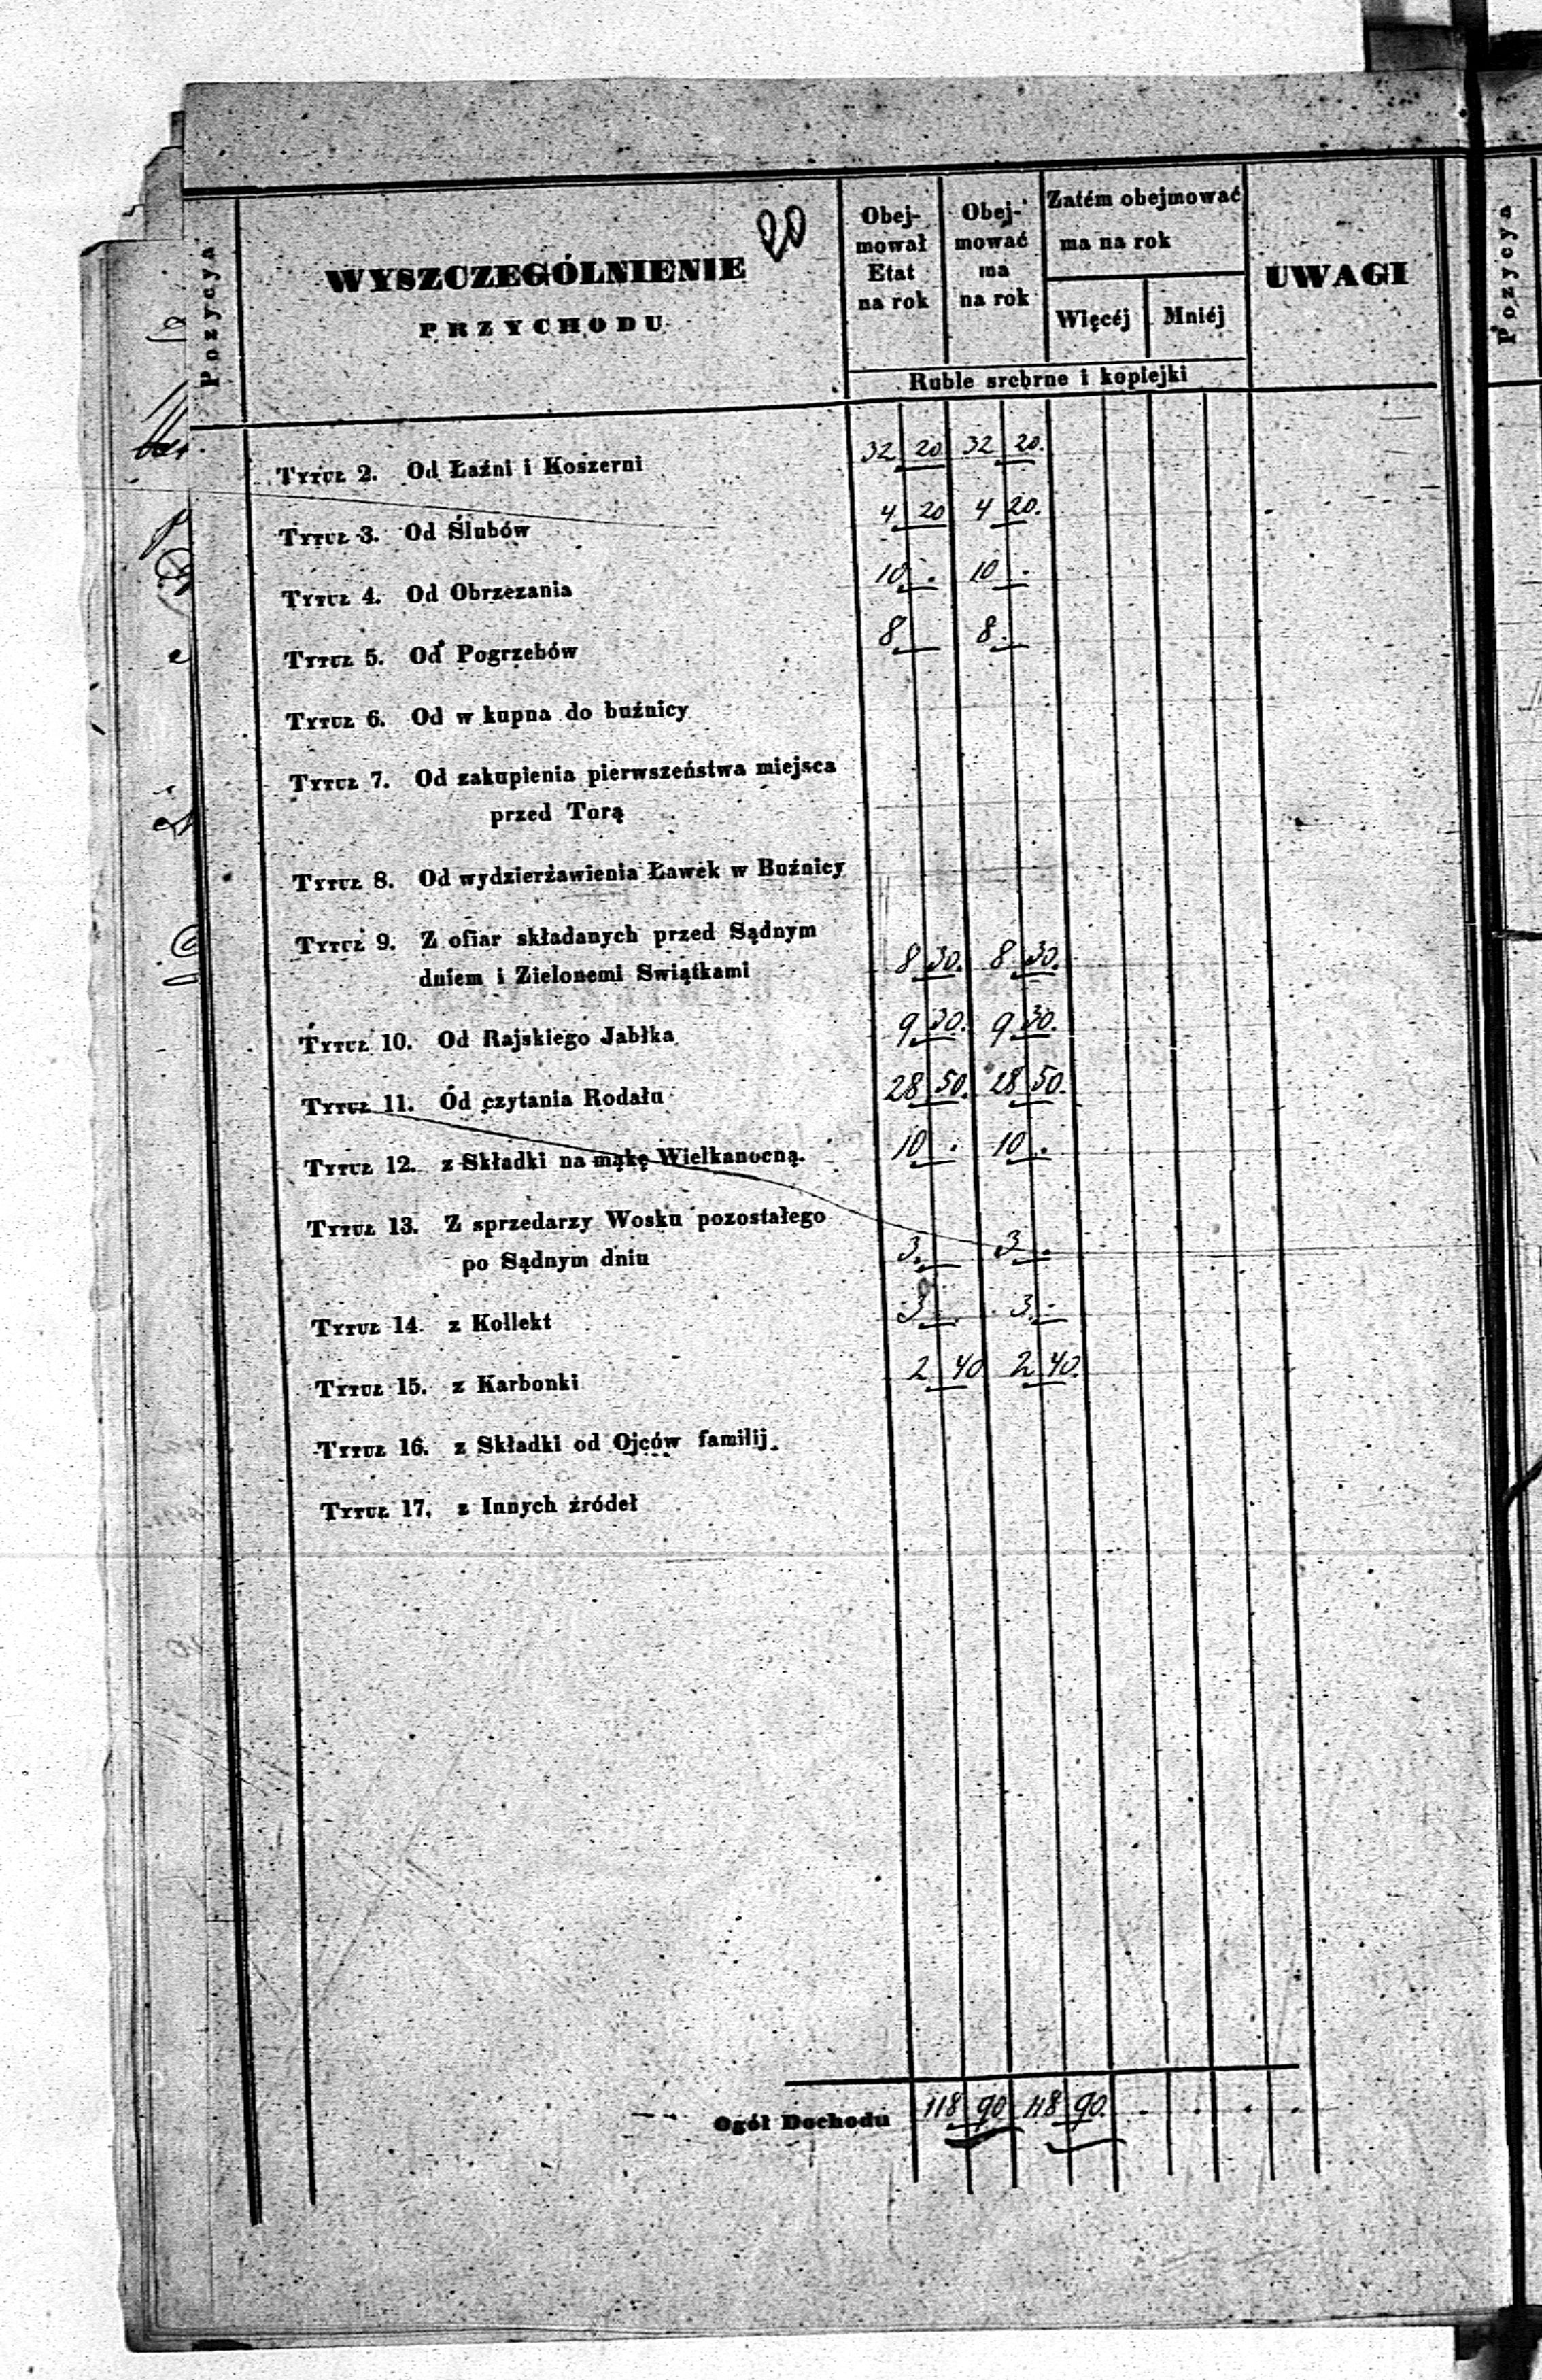 20
Pozycya
WYSZCZEGÓLNIENIE
PRZYCHODU
Obej-
mował
Etat
na rok
Obej-
mować
ma
na rok
Zatém obejmować
ma na rok
Więcéj Mniéj
UWAGI
Ruble srebrne i kopiejki
Pozycya
Tytuł 2. Od Łaźni i Koszerni 32 20 32 20.
Tytuł 3. Od Ślubów 4 20 4 20.
Tytuł 4. Od Obrzezania 10 . 10 .
Tytuł 5. Od Pogrzebów 8 8.
Tytuł 6. Od w kupna do buźnicy
Tytuł 7. Od zakupienia pierwszeństwa miejsca
przed Torą
Tytuł 8. Od wydzierżawienia Ławek w Buźnicy
Tytuł 9. Z ofiar składanych przed Sądnym
dniem i Zielonemi Swiątkami 8 30. 8 30.
Tytuł 10. Od Rajskiego Jabłka 9 30. 9 30.
Tytuł 11. Od czytania Rodału 28 50. 28 50.
Tytuł 12. z Składki na mąkę Wielkanocną. 10 . 10 .
Tytuł 13. Z sprzedarzy Wosku pozostałego
po Sądnym dniu 3. 3 .
Tytuł 14. z Kollekt 3 . 3 .
Tytuł 15. z Karbonki 2 40 2 40.
Tytuł 16. z Składki od Ojców familij.
Tytuł 17. z Innych źródeł
Ogół Dochodu 118 90 118 90.